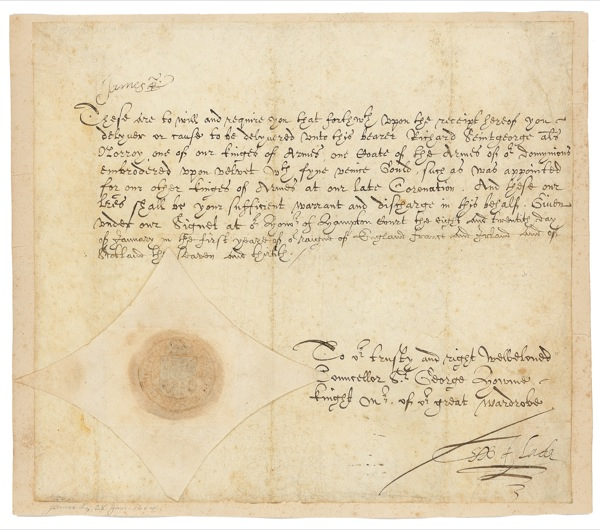 James R.
These are to will and require you that forthwth upon the receipt hereof you
delyver or cause to be delyvered unto this bearer Richard Seintgeorge als
Norroy one of our kinges of Armes one Coate of the Armes of or Dominions
embrodered upon velvet wth fyne venice Gould such as was appointed
for our other kinges of Armes at our late Coronation. And these our
lres shall be your sufficient warrant and discharge in this behalf. Given
under our Signet at or Honor of Hampton Court the eight and twentith day
of January in the first yeare of or raigne of England france and Ireland and of
Scotland the seaven and thirtith.
To or trusty and right Welbeloved
Councellor Sr George Howme
knight Mr. of or great Wardrobe
Tho